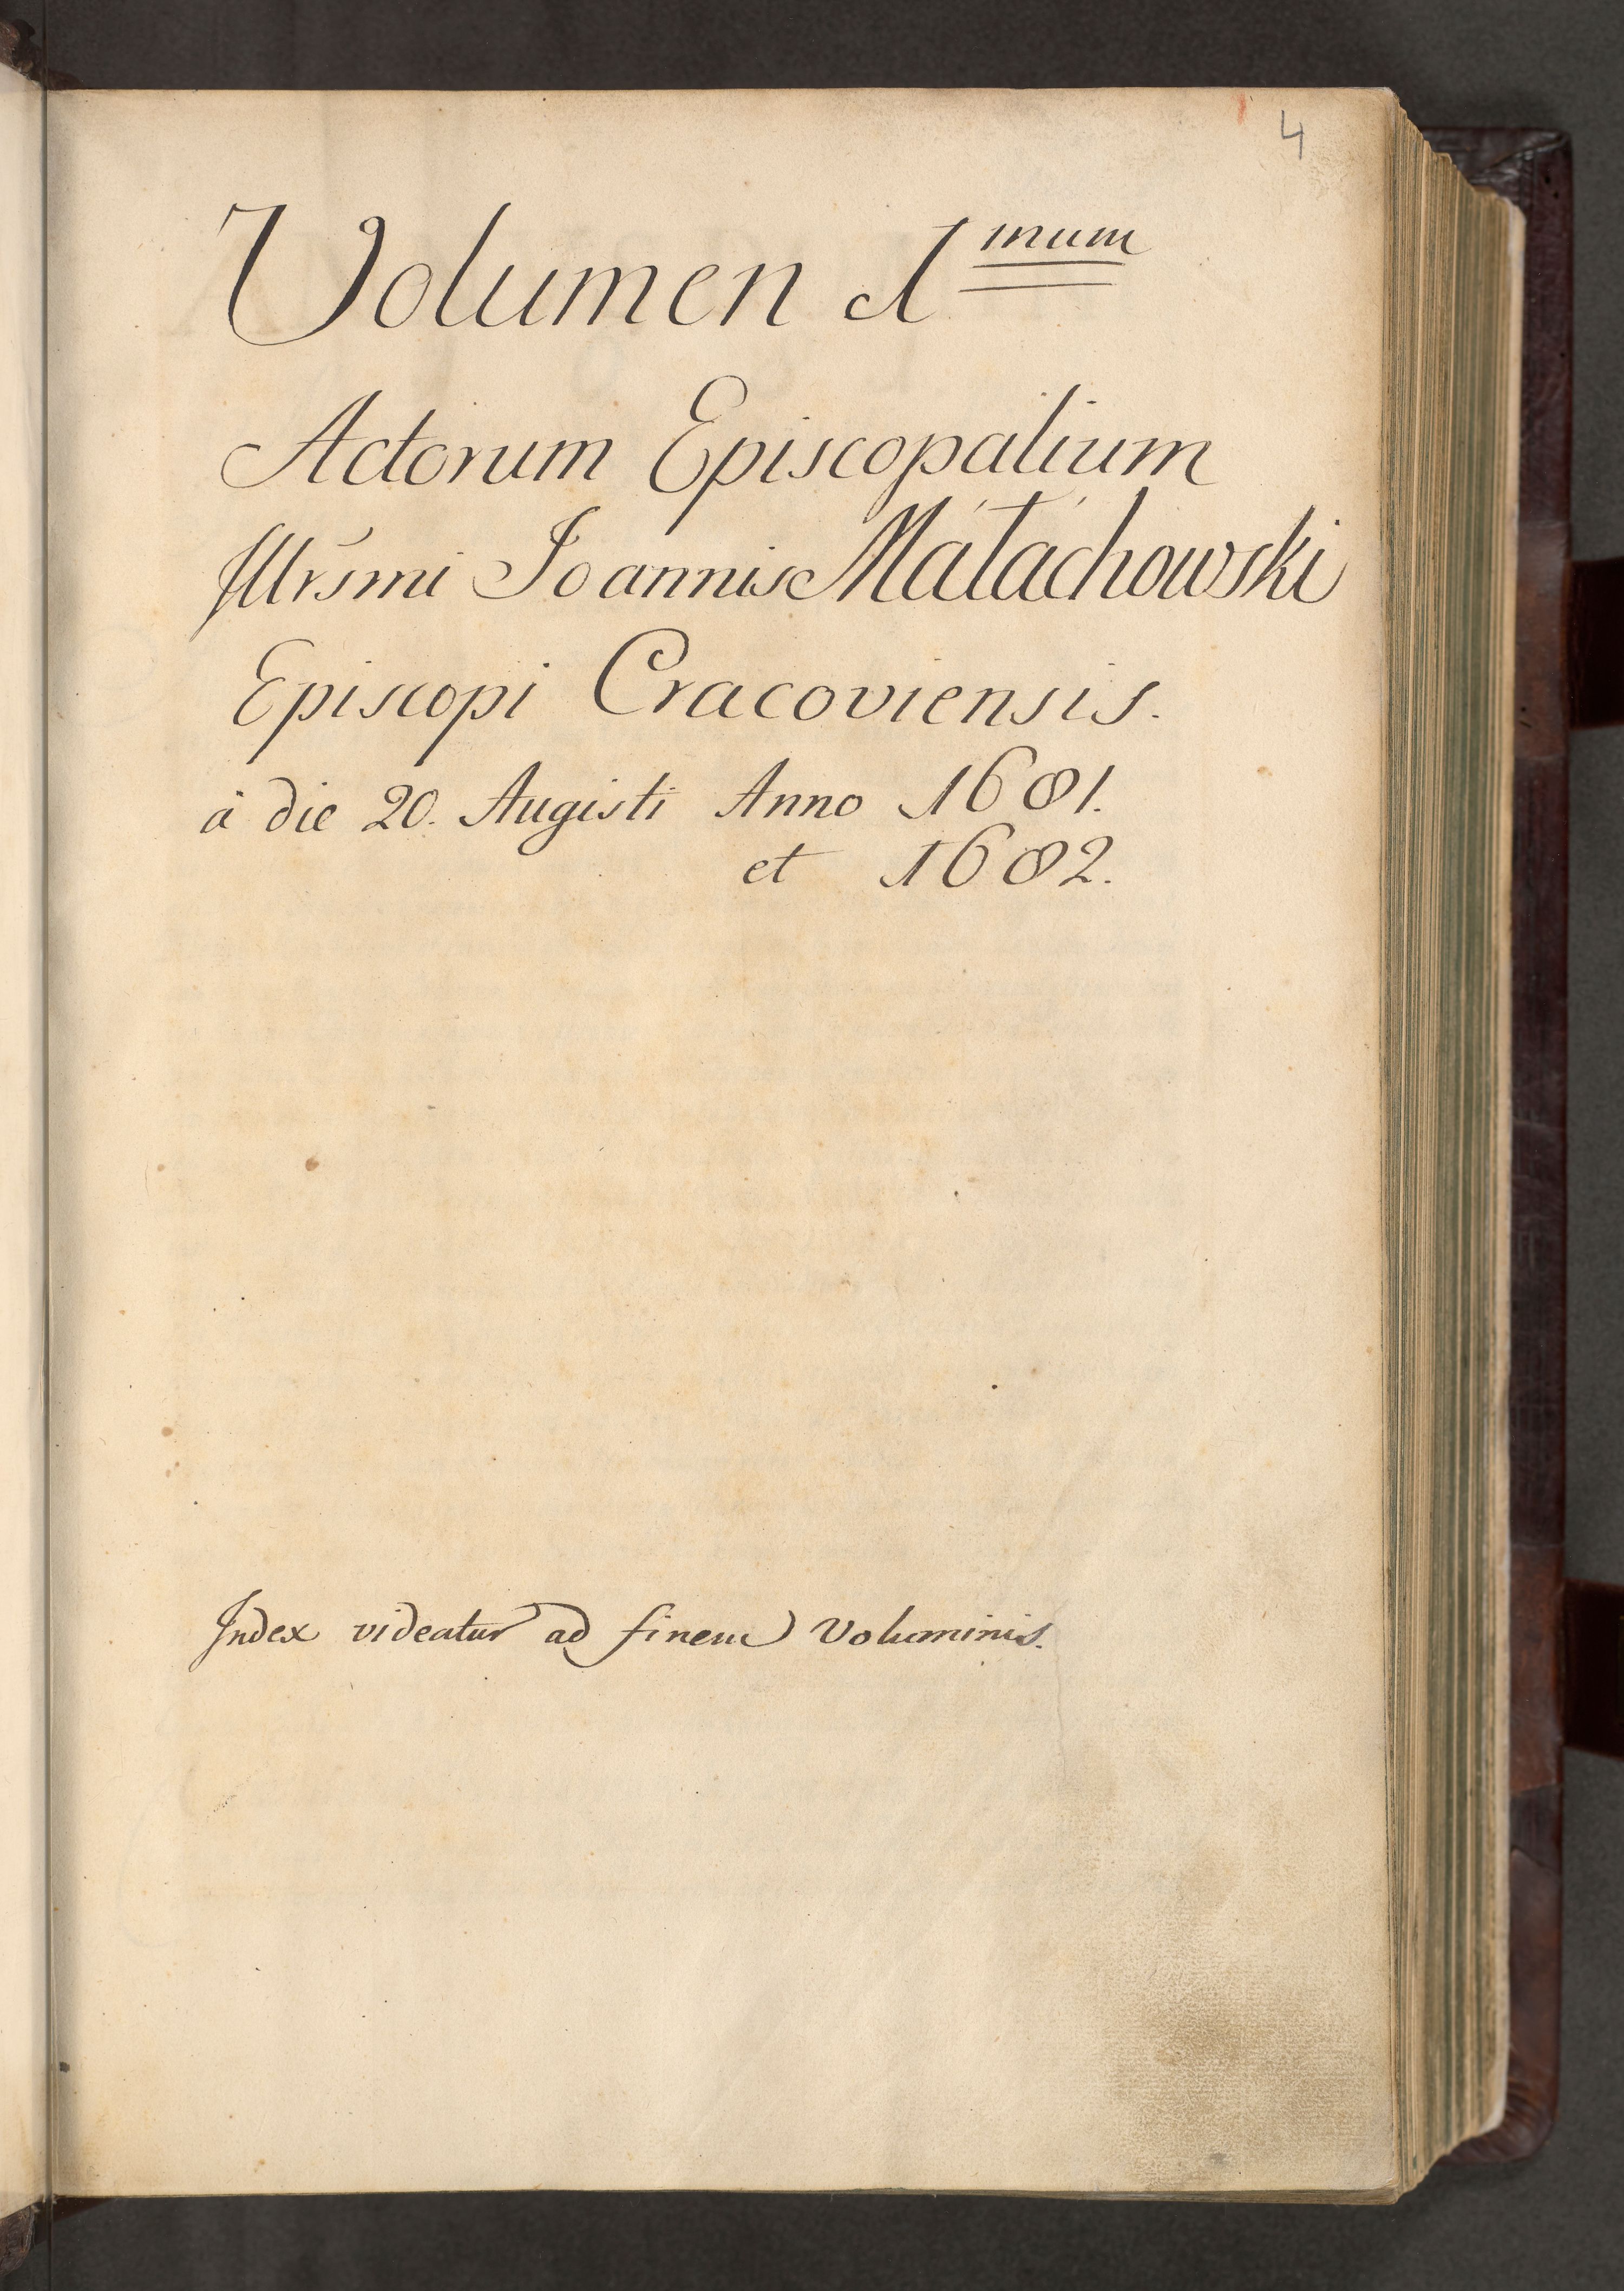 4
Volumen 1mum
Actorum Episcopalium
Illrsmi Joannis Małachowski
Episcopi Cracoviensis.
à die 20. Augisti Anno 1681.
et 1682.
Index videatur ad finem Voluminis.